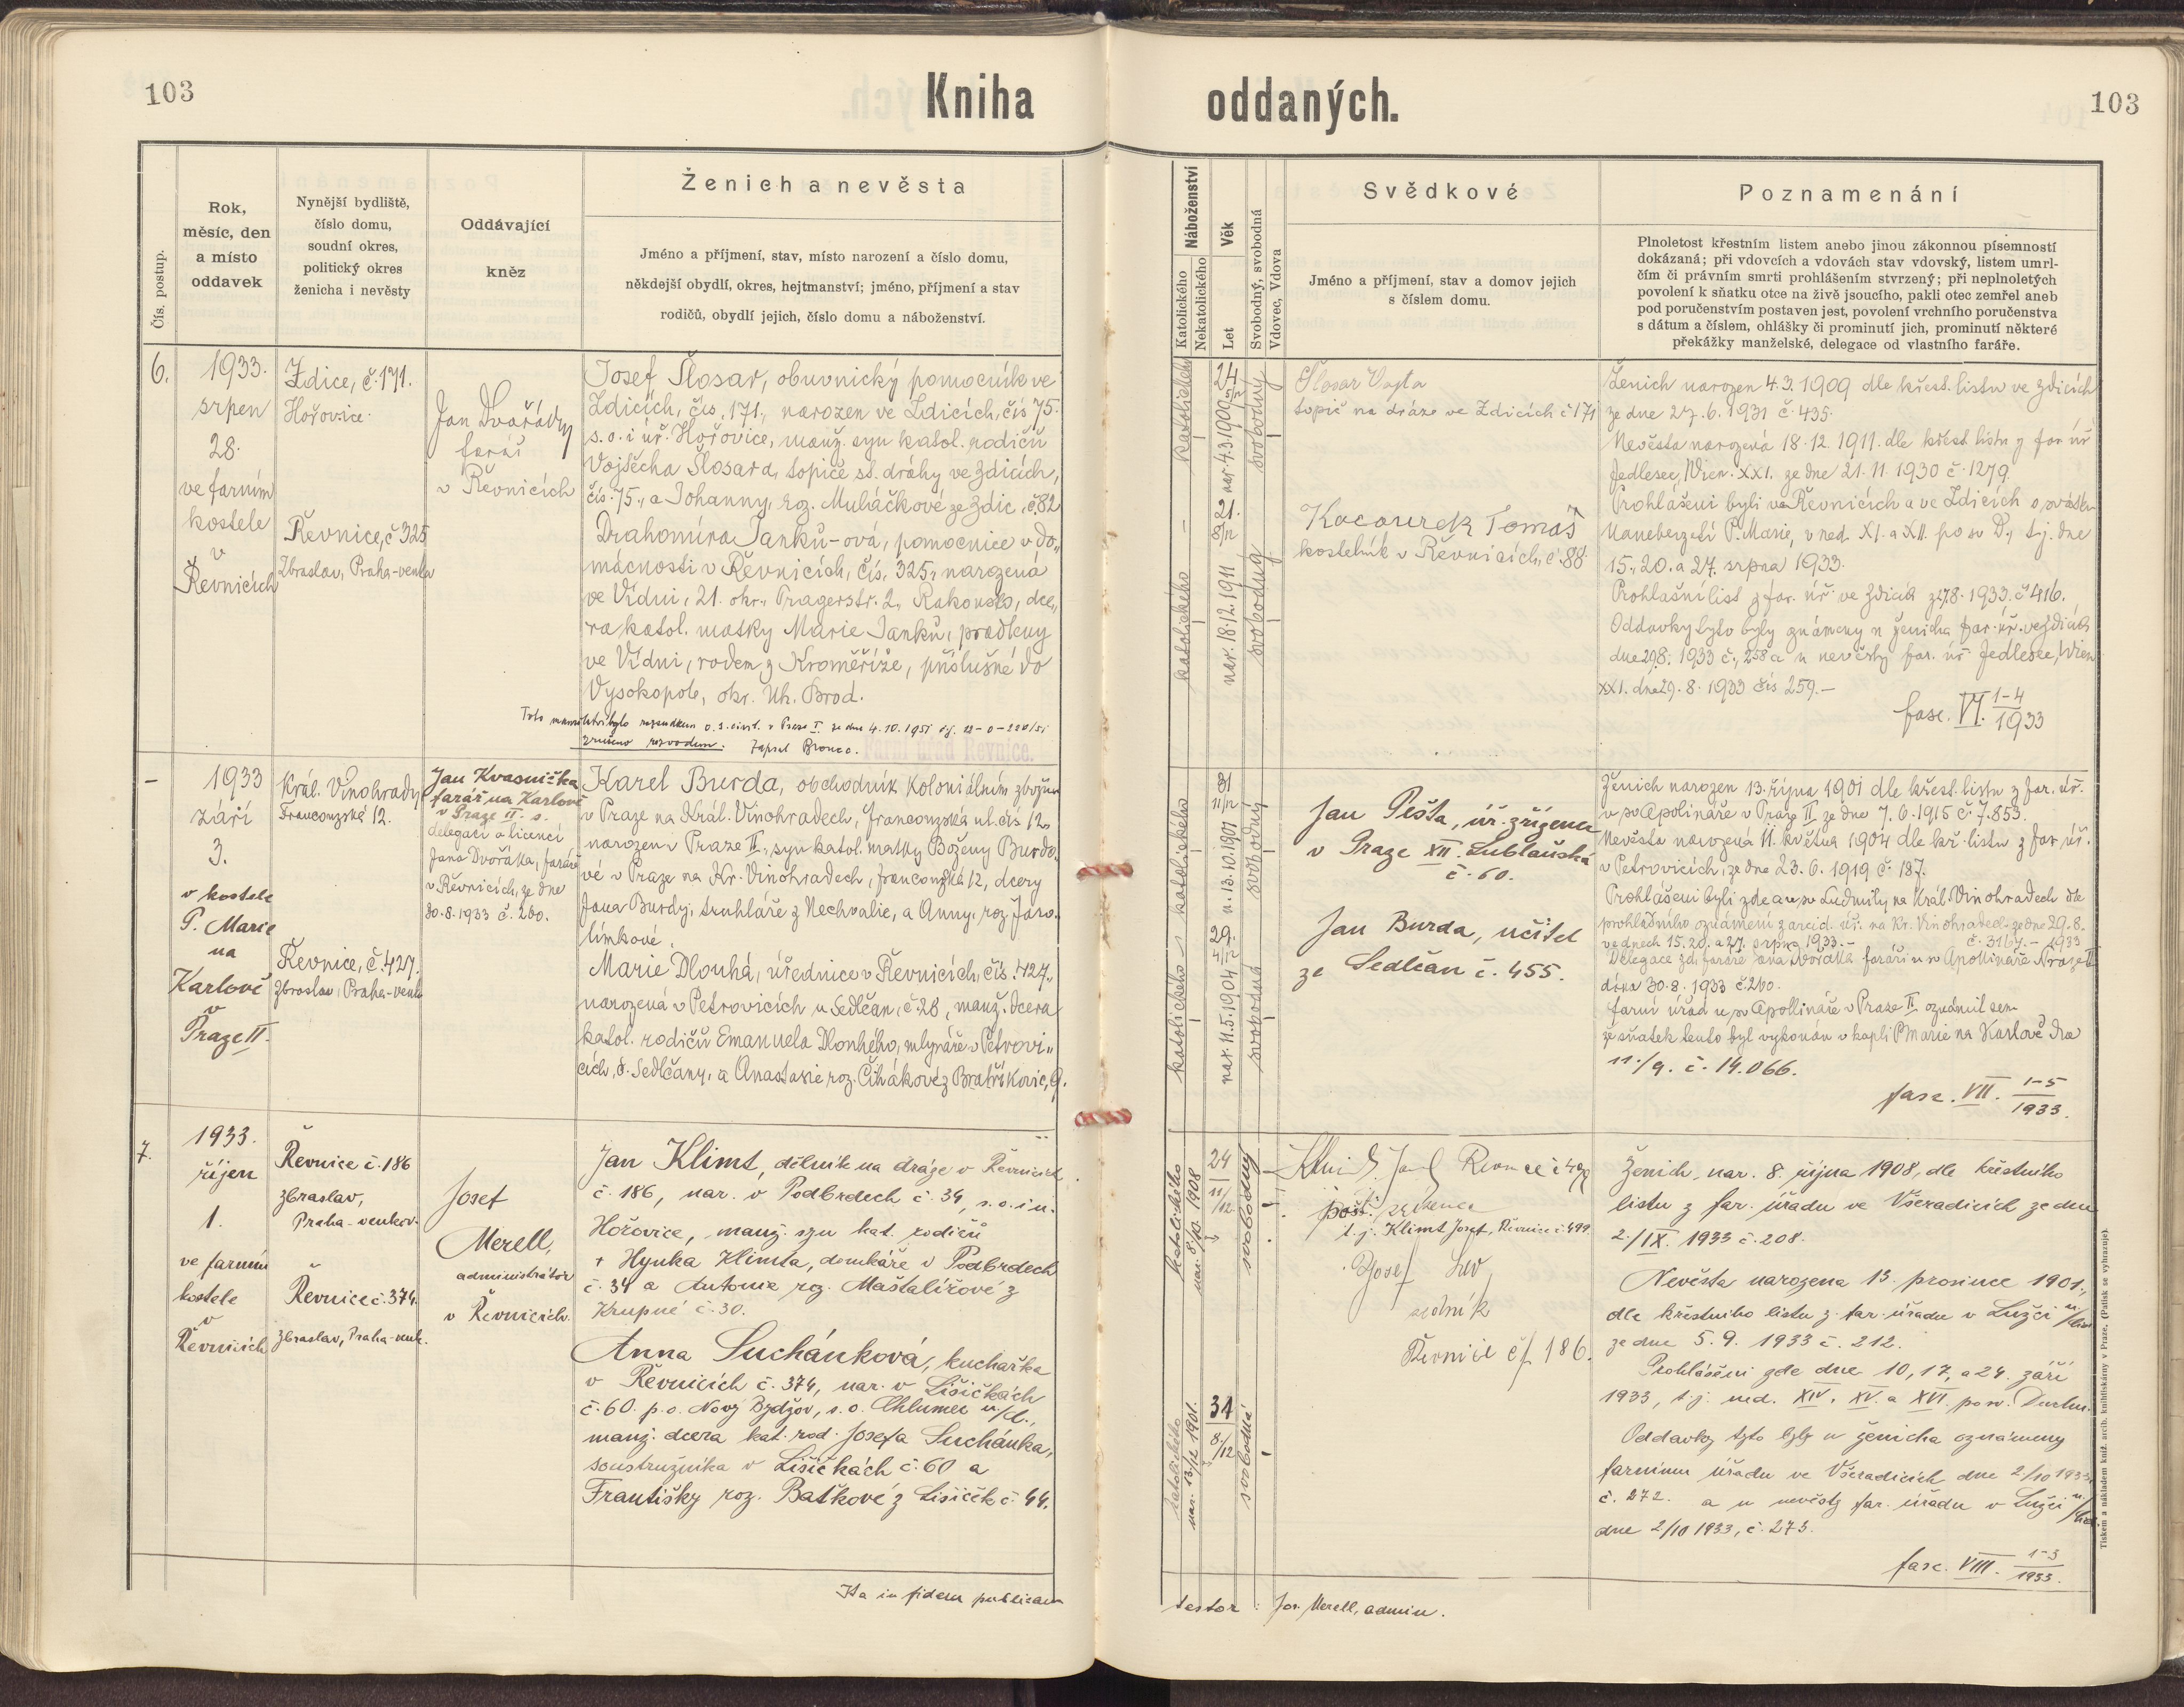 103
Kniha
oddaných.
103
Čís. postup.
Rok,
měsíc, den
a místo
oddavek
Nynější bydliště,
číslo domu,
soudní okres,
politický okres
ženicha i nevěsty
Oddávající
kněz
Ženich a nevěsta
Jméno a příjmení, stav, místo narození a číslo domu,
někdejší obydlí, okres, hejtmanství; jméno, příjmení a stav
rodičů, obydlí jejich, číslo domu a náboženství.
Náboženství
Katolického
Nekatolického
Věk
Let
Svobodný, svobodná
Vdovec, Vdova
Svědkové
Jméno a příjmení, stav a domov jejich
s číslem domu.
Poznamenání
Plnoletost křestním listem anebo jinou zákonnou písemností
dokázaná; při vdovcích a vdovách stav vdovský, listem umrl-
čím či právním smrti prohlášením stvrzený; při neplnoletých
povolení k sňatku otce na živě jsoucího, pakli otec zemřel aneb
pod poručenstvím postaven jest, povolení vrchního poručenstva
s dátum a číslem, ohlášky či prominutí jich, prominutí některé
překážky manželské, delegace od vlastního faráře.
6.
1933.
srpen
28.
ve farním
kostele
v
Řevnicích
Zdice, č. 171.
Hořovice.
Řevnice, č 325
Zbraslav, Praha-venkov
Jan Dvořák,
farář
v Řevnicích
Josef Šlosar, obuvnický pomocník ve
Zdicích, čís. 171., narozen ve Zdicích, čís 75.
s. o. i úř. Hořovice, manž. syn katol. rodičů
Vojtěcha Šlosara, topiče st. dráhy ve Zdicích,
čís. 75., a Johanny, roz. Muláčkové ze Zdic, č. 82
Drahomíra Janků-ová, pomocnice v do-
mácnosti v Řevnicích, čís. 325., narozená
ve Vídni, 21. okr., Pragerstr. 2., Rakousko, dce-
ra katol. matky Marie Janků, pradleny
ve Vídni, rodem z Kroměříže, příslušné do
Vysokopole, okr. Uh. Brod.
Toto manželství bylo rozsudkem o. s. civil. v Praze I. ze dne 4. 10. 1951
zrušeno rozvodem. Zapsal
Farní úřad Řevnice.
katolického
24
nar. 4.3.1909
svobodný
katolického
21.
8/12
nar. 18.12.1911
svobodná
Šlosar Vojta
topič na dráze ve Zdicích č 171
Kocourek Tomáš
kostelník v Řevnicích, č. 88
Ženich narozen 4.3.1909 dle křest. listu ve Zdicích
ze dne 27. 6. 1931 č. 435.
Nevěsta narozená 18.12.1911. dle křest. listu z far. úř.
Jedlesee, Wien. XXI. ze dne 21. 11. 1930 č. 1279.
Prohlášeni byli v Řevnicích a ve Zdicích o svátku
Nanebevzetí P. Marie, v ned. XI. a XII. po sv. D., t.j. dne
15., 20. a 27. srpna 1933.
Prohlašní list z far. úř. ve Zdicích z 27.8. 1933. č. 416.
Oddavky tyto byly známeny u ženicha far. úř. ve Zdicích
dne 29.8. 1933 č. 258 a u nevěsty far. úř. Jedlesee, Wien
XXI. dne 29. 8. 1933 čís 259.-
fasc. VI. 1-4
1933
-
1933
září
3.
v kostele
P. Marie
na
Karlově
v
Praze II.
Král. Vinohrady
Francouzská 12.
Řevnice, č. 427.
Zbraslav, Praha-venk.
Jan Kvasnička
farář na Karlově
v Praze II. s.
delegací a licencí
Jana Dvořáka, faráře
v Řevnicích, ze dne
30. 8. 1933 č. 260.
Karel Burda, obchodník koloniálním zbožím
v Praze na Král. Vinohradech, Francouzská ul. čís 12.,
narozen v Praze II., syn katol. matky Boženy Burdo-
vé v Praze na Kr. Vinohradech, Francouzská 12, dcery
Jana Burdy, truhláře z Nechvalic, a Anny, roz. Jaro-
límkové.
Marie Dlouhá, úřednice v Řevnicích, čís. 427.,
narozená v Petrovicích u Sedlčan, č. 28, manž. dcera
katol. rodičů Emanuela Dlouhého, mlynáře v Petrovi-
cích, o. Sedlčany, a Anastasie roz. Čihákové z Bratříkovic, 9.
katolického
31
11/12
n. 13.10.1901
svobodný
katolického
29.
nar. 11.5.1904
svobodná
Jan Pešta, úř. zřízenec
v Praze XII. Lublaňská
č. 60.
Jan Burda, učitel
ze Sedlčan č. 455.
Ženich narozen 13. října 1901 dle křest. listu z far. úř.
u sv. Apolináře v Praze II. ze dne 7. 6. 1915 č. 7.853.
Nevěsta narozená 11. května 1904 dle kř. listu z far. úř.
v Petrovicích, ze dne 23. 6. 1919 č. 187.
Prohlášeni byli zde a u sv. Ludmily na Král. Vinohradech dle
prohlašního oznámení z arcid. úř. na Kr. Vinohradech ze dne 29. 8.
ve dnech 15. 20. a 27. srpna 1933.- č. 3167.- 1933
Delegace zd. faráře Jana Dvořáka faráři u sv. Apolináře v Praze II
dána 30. 8. 1933 č. 260.
Farní úřad u sv. Apollináře v Praze II. oznámil sem
že sňatek tento byl vykonán v kapli P. Marie na Karlově dne
11./9. č. 14.066.
fasc. VII. 1-5
1933.
7.
1933.
říjen
1.
ve farním
kostele
v
Řevnicích
Řevnice č. 186
Zbraslav,
Praha-venkov.
Řevnice č. 374.
Zbraslav, Praha-venk.
Josef
Merell,
administrátor
v Řevnicích.
Jan Klimt, dělník na dráze v Řevnicích
č. 186, nar. v Podbrdech č. 34, s. o. i ú.
Hořovice, manž. syn kat. rodičů
+ Hynka Klimta, domkáře v Podbrdech
č. 34 a Antonie roz. Maštalířové z
Krupné č. 30.
Anna Suchánková, kuchařka
v Řevnicích č. 374, nar. v Lišičkách
č. 60. p. o. Nový Bydžov, s. o. Chlumec n./C.,
manž. dcera kat. rod. Josefa Suchánka,
soustružníka v Lišičkách č. 60 a
Františky roz. Baťkové z Lišiček č. 44.
katolického
nar. 8./10. 1908
24
11/12
svobodný
katolického
nar. 13/12 1901.
31
8/12
svobodná
Klimt Josef Řevnice č 499
pošt. zřízenec
t. j. Klimt Josef, Řevnice č. 499.
Josef Lev
rolník
Řevnice čp 186.
Ženich, nar. 8. října 1908, dle křestního
listu z far. úřadu ve Všeradicích ze dne
2./IX. 1933 č. 208.
Nevěsta narozena 13. prosince 1901.,
dle křestního listu z far. úřadu v Lužci n./Cidl.
ze dne 5. 9. 1933 č. 212.
Prohlášeni zde dne 10, 17, a 24. září
1933, t. j. ned. XIV. XV. a XVI. po sv. Duchu.
Oddavky tyto byly u ženicha oznámeny
farnímu úřadu ve Všeradicích dne 2/10 1933,
č. 272. a u nevěsty far. úřadu v Lužci n./Cidl.
dne 2/10 1933, č. 273.
fasc. VIII. 1-3
1933.
Ita in fidem publicam
testor: Jos. Merell, admin.
Tiskem a nákladem kníž. arcib. knihtiskárny v Praze. (Patisk se vyhrazuje.)